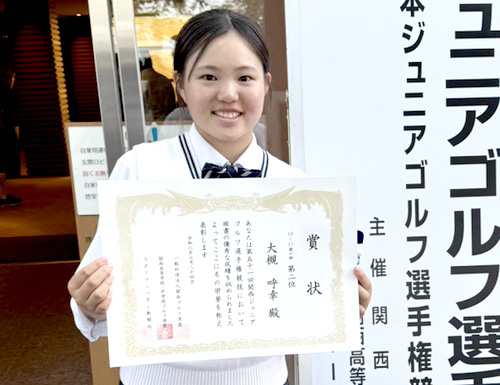 賞状
15〜17歳の部 第二位
大槻 呼幸 殿
あなたは第五十一回関西ジュニア
ゴルフ選手権競技において
頭書の優秀な成績を収められました
よってここにその栄誉を称え
表彰します
一般社団法人関西ゴルフ連盟
ュニアゴルフ選手
本ジュニアゴルフ選手権競
主催 関西
西高等
自家用
玄関ロビ